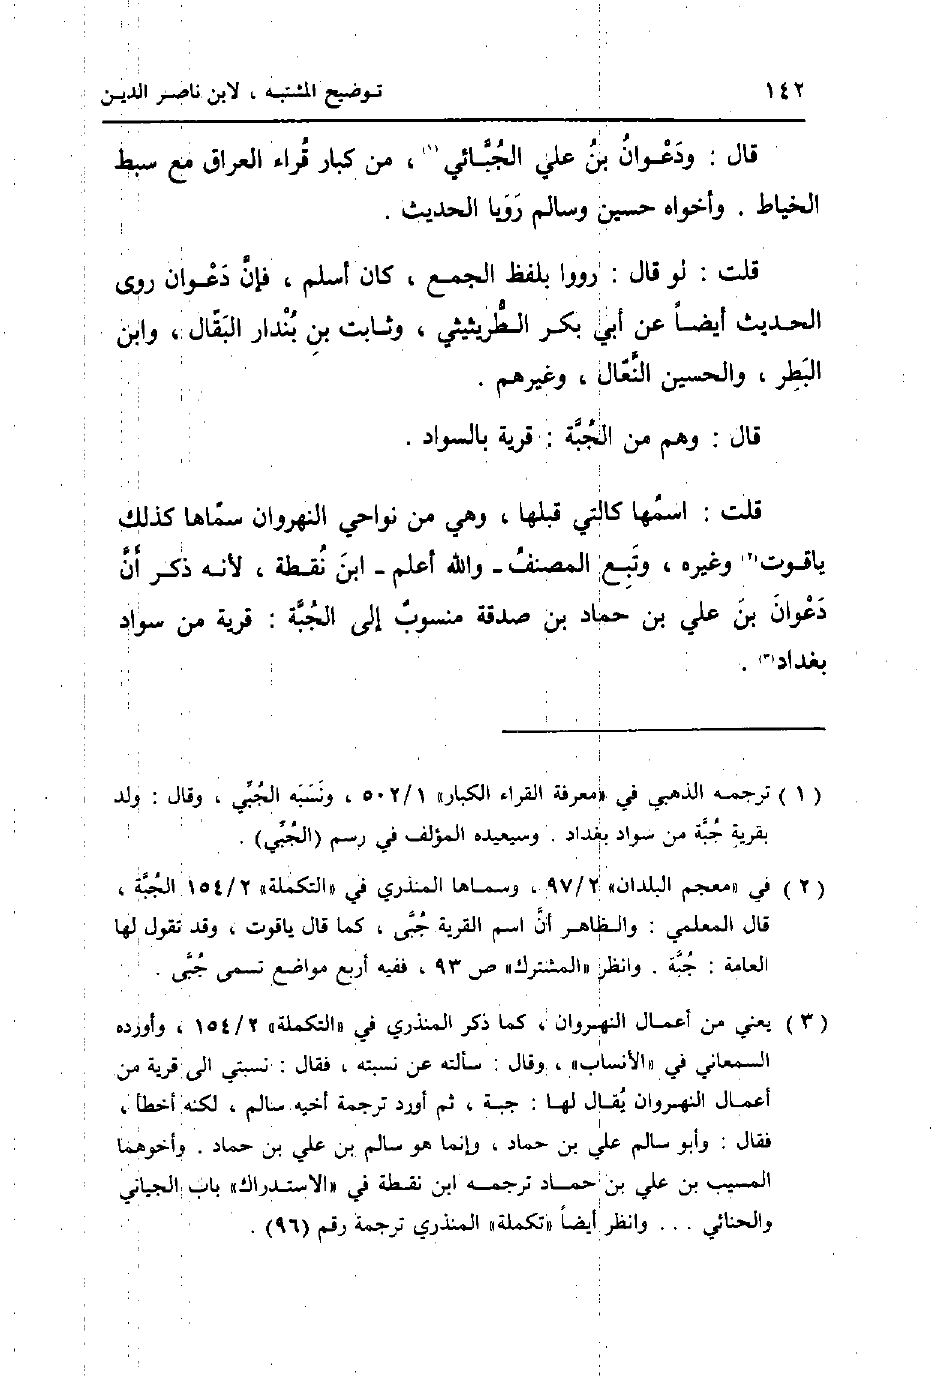 ١٤٢ توضيح المشتبه ، لابن ناصر الدين
قال : ودَعْوانُ بنُ علي الجُبَّائي(١) ، من كبار قُراء العراق مع سبط
الخياط . وأخواه حسين وسالم رَوَيا الحديث .
قلت : لو قال : رووا بلفظ الجمع ، كان أسلم ، فإنَّ دَعْوان روى
الحديث أيضاً عن أبي بكر الطُّريثيثي ، وثابت بنِ بُنْدار البَقّال ، وابن
البَطِر ، والحسين النَّعّال ، وغيرهم .
قال : وهم من الجُبَّة : قرية بالسواد .
قلت : اسمُها كالتي قبلها ، وهي من نواحي النهروان سمّاها كذلك
ياقوت(٢) وغيره ، وتَبِع المصنفُ ـ والله أعلم ـ ابنَ نُقطة ، لأنه ذكر أنَّ
دَعْوانَ بنَ علي بن حماد بن صدقة منسوبٌ إلى الجُبَّة : قرية من سواد
بغداد(٣) .
(١) ترجمه الذهبي في «معرفة القراء الكبار» ٥٠٢/١ ، ونَسَبَه الجُبِّي ، وقال : ولد
بقريةِ جُبَّة من سواد بغداد . وسيعيده المؤلف في رسم (الجُبِّي) .
(٢) في «معجم البلدان» ٩٧/٢ ، وسماها المنذري في «التكملة» ١٥٤/٢ الجُبَّة ،
قال المعلمي : والظاهر أنَّ اسم القرية جُبَّى ، كما قال ياقوت ، وقد تقول لها
العامة : جُبَّة . وانظر «المشترك» ص ٩٣ ، ففيه أربع مواضع تسمى جُبَّى .
(٣) يعني من أعمال النهروان ، كما ذكر المنذري في «التكملة» ١٥٤/٢ ، وأورده
السمعاني في «الأنساب» ، وقال : سألته عن نسبته ، فقال : نسبتي الى قرية من
أعمال النهروان يُقال لها : جبة ، ثم أورد ترجمة أخيه سالم ، لكنه أخطأ ،
فقال : وأبو سالم علي بن حماد ، وإنما هو سالم بن علي بن حماد . وأخوهما
المسيب بن علي بن حماد ترجمه ابن نقطة في «الاستدراك» باب الجياني
والحنائي ... وانظر أيضاً «تكملة» المنذري ترجمة رقم (٩٦) .